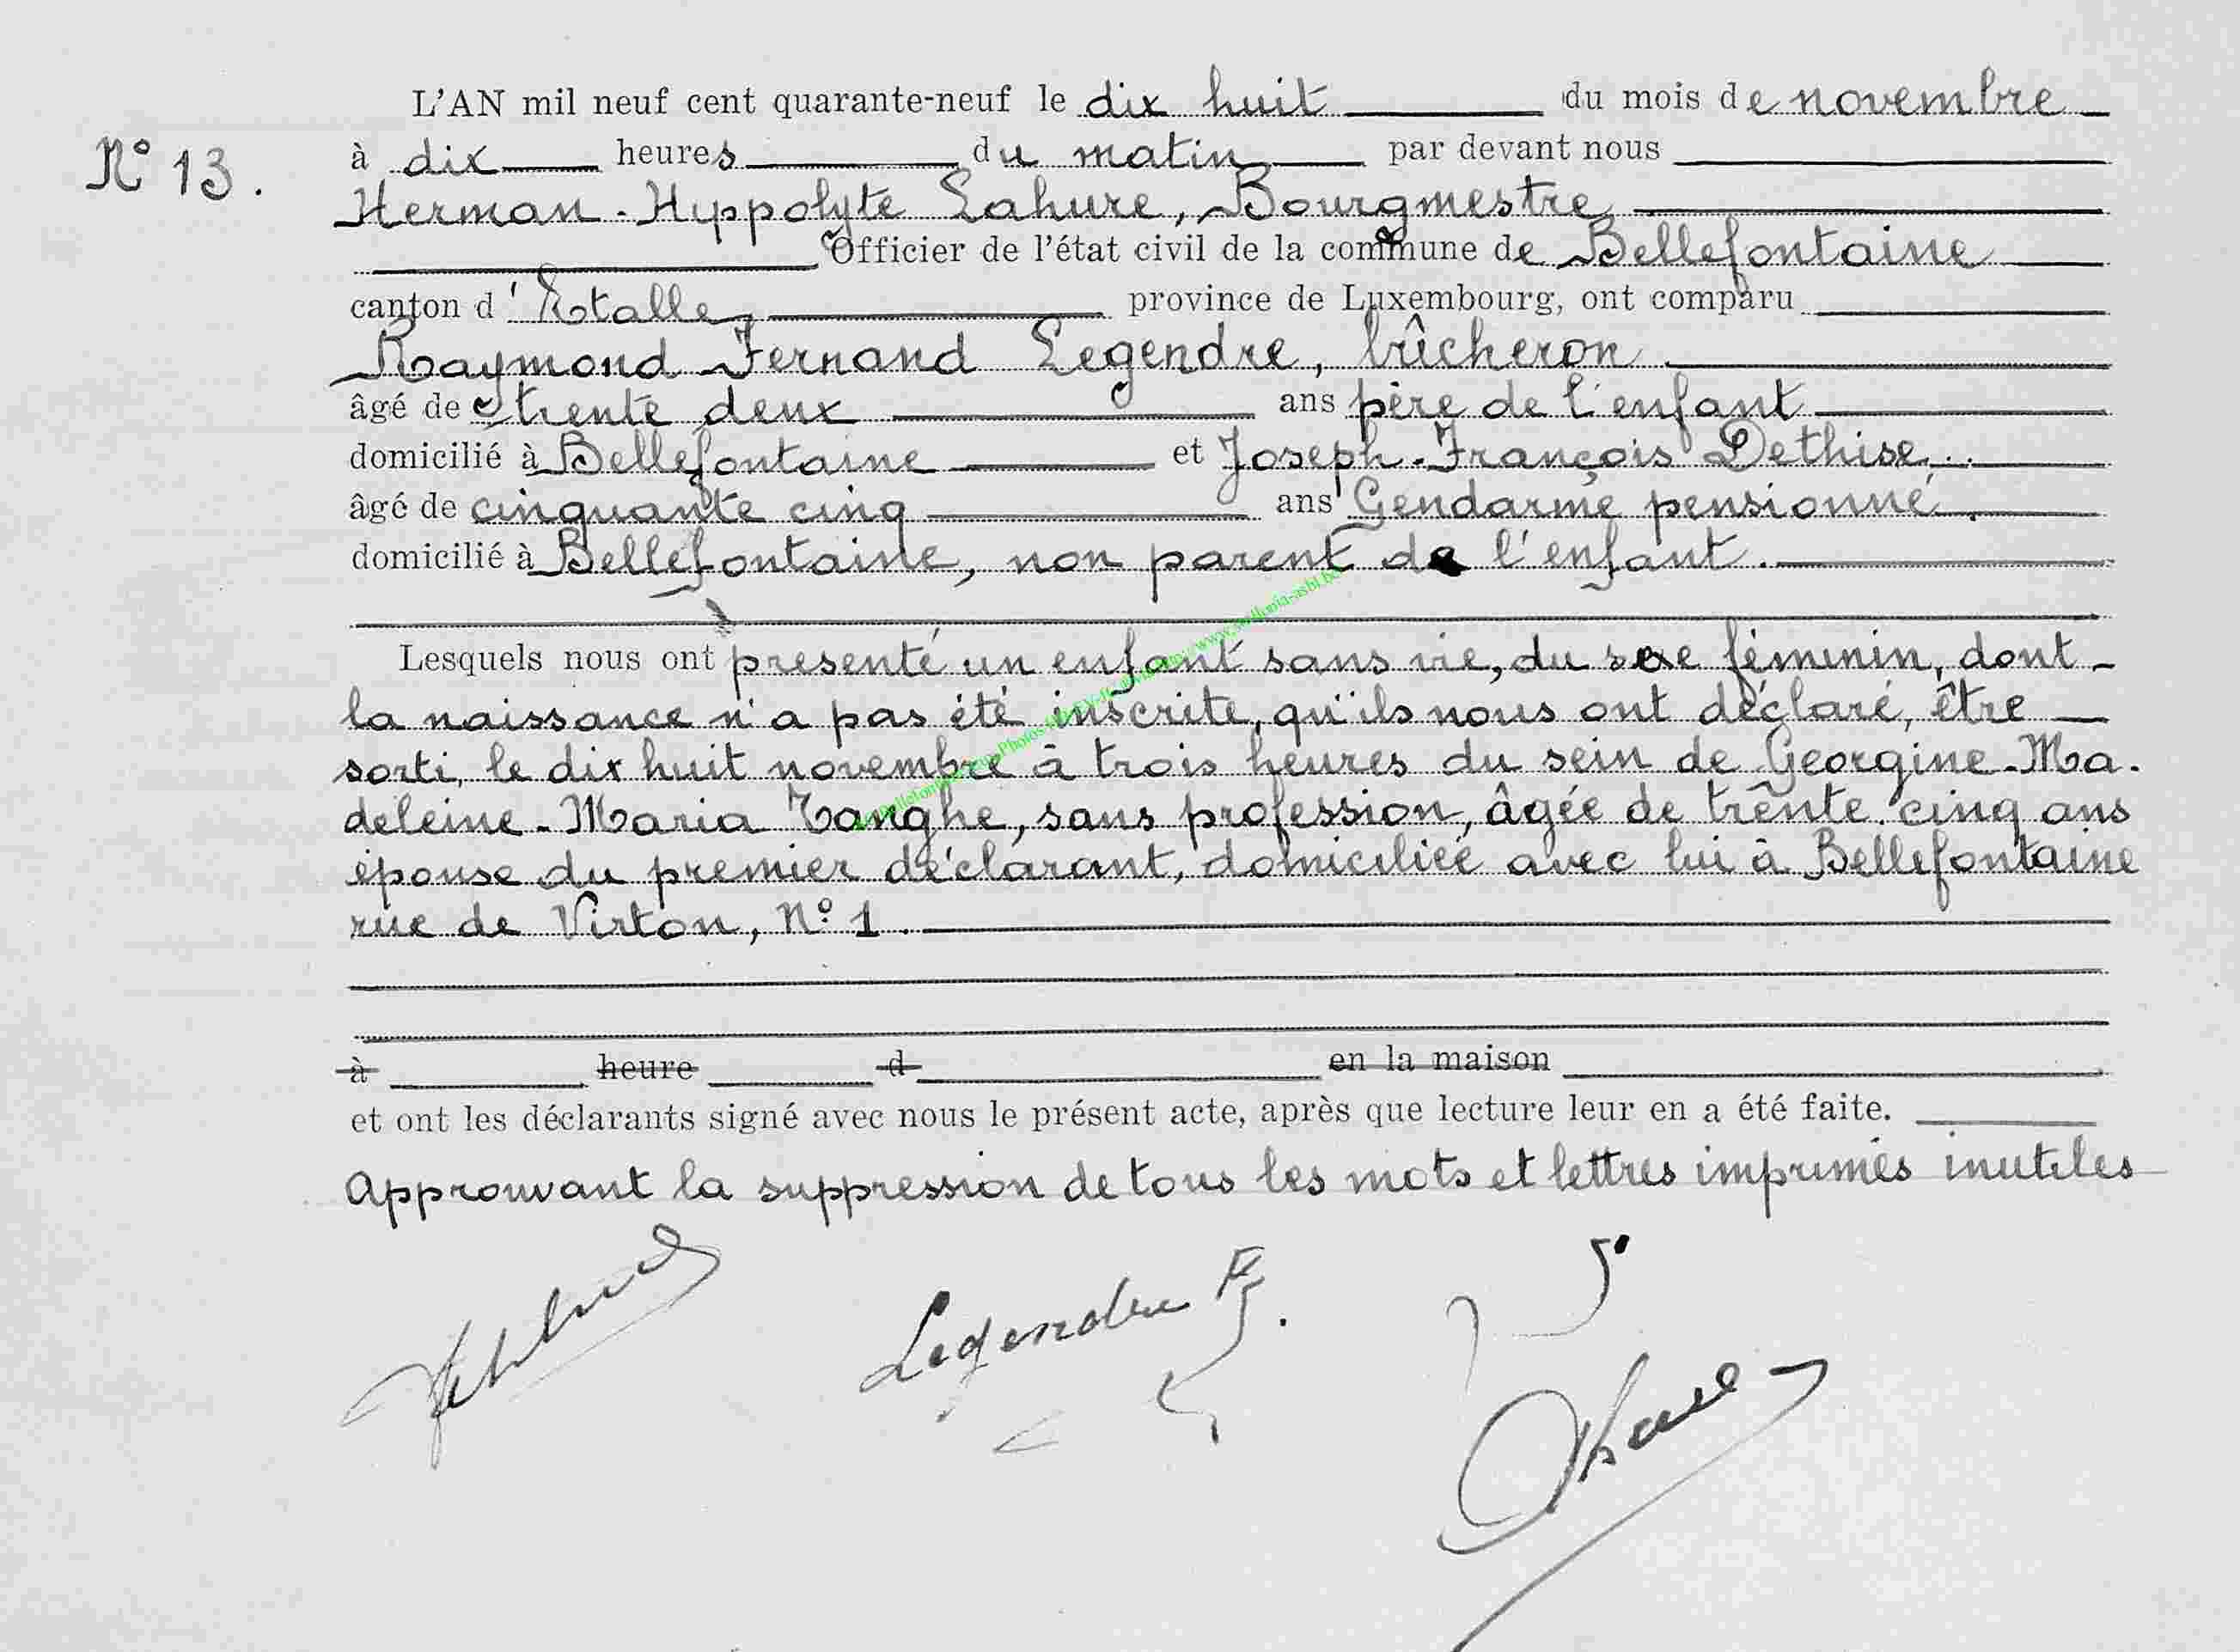 L'AN mil neuf cent quarante-neuf le dix huit du mois de novembre
N° 13.
à dix heures du matin par devant nous
Herman-Hyppolyte Lahure, Bourgmestre
Officier de l'état civil de la commune de Bellefontaine
canton d'Etalle province de Luxembourg, ont comparu
Raymond Fernand Legendre, bûcheron
âgé de trente deux ans père de l'enfant
domicilié à Bellefontaine et Joseph-François Dethise
âgé de cinquante cinq ans Gendarme pensionné.
domicilié à Bellefontaine, non parent de l'enfant.
Lesquels nous ont présenté un enfant sans vie, du sexe féminin, dont
la naissance n'a pas été inscrite, qu'ils nous ont déclaré, être
sorti, le dix huit novembre à trois heures du sein de Georgine-Ma-
deleine-Maria Tanghe, sans profession, âgée de trente-cinq ans
épouse du premier déclarant, domiciliée avec lui à Bellefontaine
rue de Virton, N° 1.
à heure d en la maison
et ont les déclarants signé avec nous le présent acte, après que lecture leur en a été faite.
Approuvant la suppression de tous les mots et lettres imprimés inutiles
Legendre F.